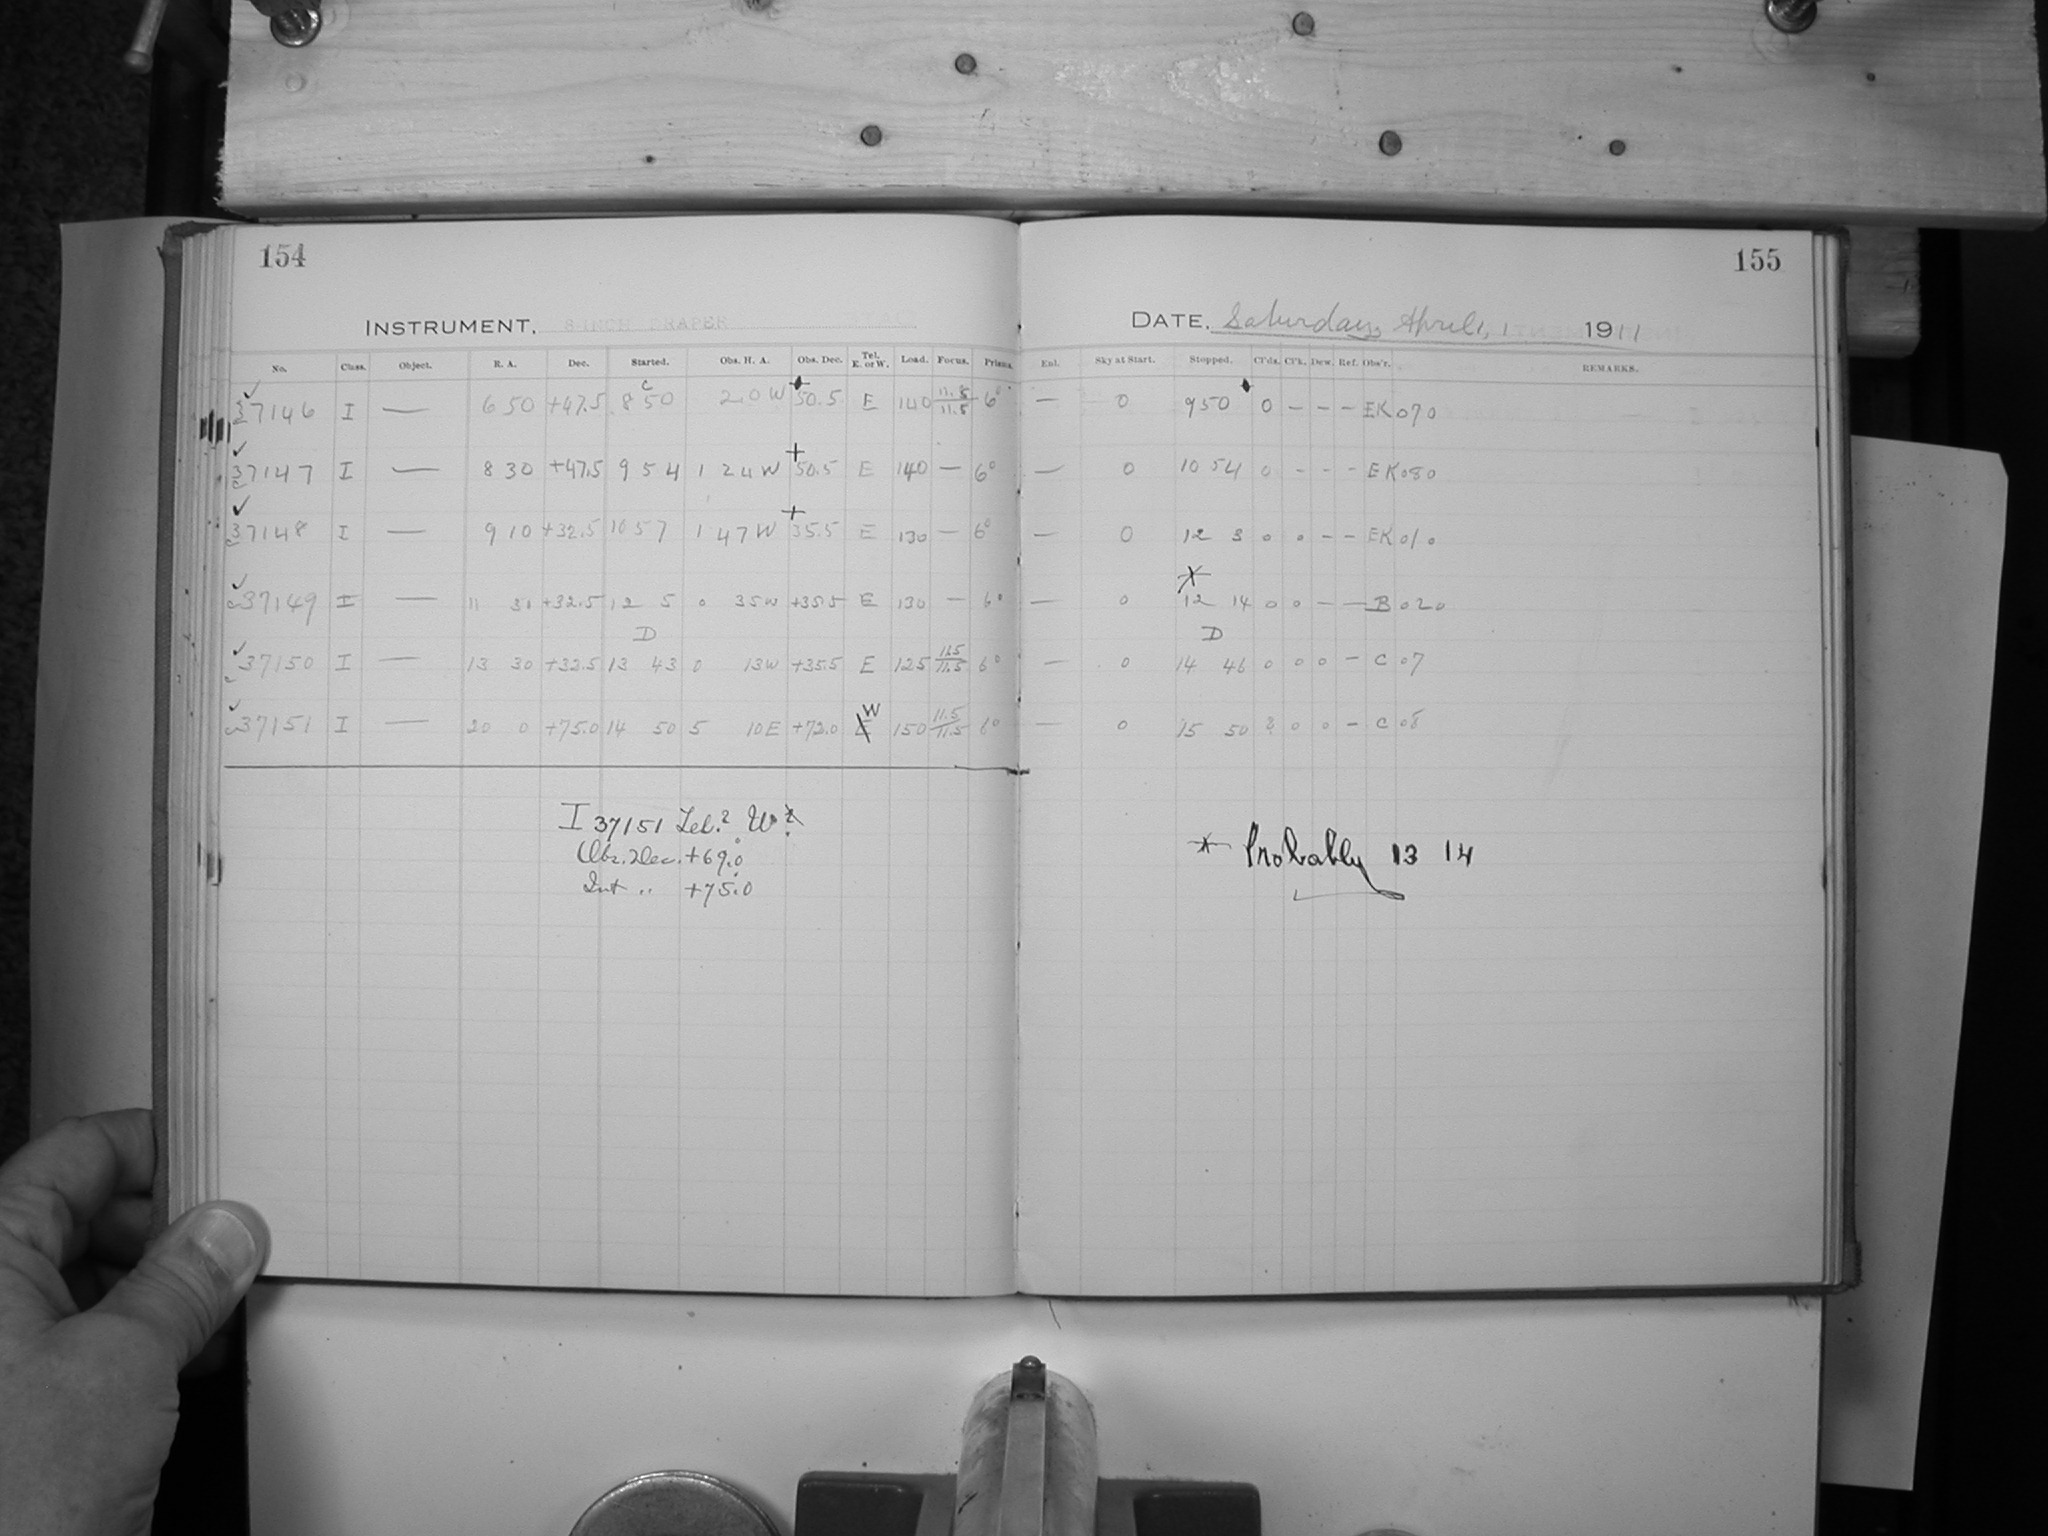 154
155
INSTRUMENT, 8-INCH DRAPER
DATE, Saturday, April, 1 1911
No. Class. Object. R. A. Dec. Started. Obs. H. A. Obs. Dec. Tel. E. or W. Load. Focus. Prisms. Enl. Sky at Start. Stopped. Cl'ds. Cl'k. Dew. Ref. Obs'r. REMARKS.
37146 I — 6 50 +47.5 8 50 2 0 W +50.5 E 140 11.5/11.5 6° — 0 9 50 0 – – – EK 070
37147 I — 8 30 +47.5 9 54 1 24 W +50.5 E 140 — 6° — 0 10 54 0 – – – EK 080
37148 I — 9 10 +32.5 10 57 1 47 W +35.5 E 130 — 6° — 0 12 3 0 0 – – EK 010
37149 I — 11 31 +32.5 12 5 0 35 W +35.5 E 130 — 6° — 0 12 14 0 0 – — B 020
D D
37150 I — 13 30 +32.5 13 43 0 13 W +35.5 E 125 11.5/11.5 6° — 0 14 46 0 0 0 – C 07
37151 I — 20 0 +75.0 14 50 5 10 E +72.0 W 150 11.5/11.5 6° — 0 15 50 2 0 0 – C 08
I 37151 Tel.? W?
Obs. Dec. +69.0
Int " +75.0
* Probably 13 14